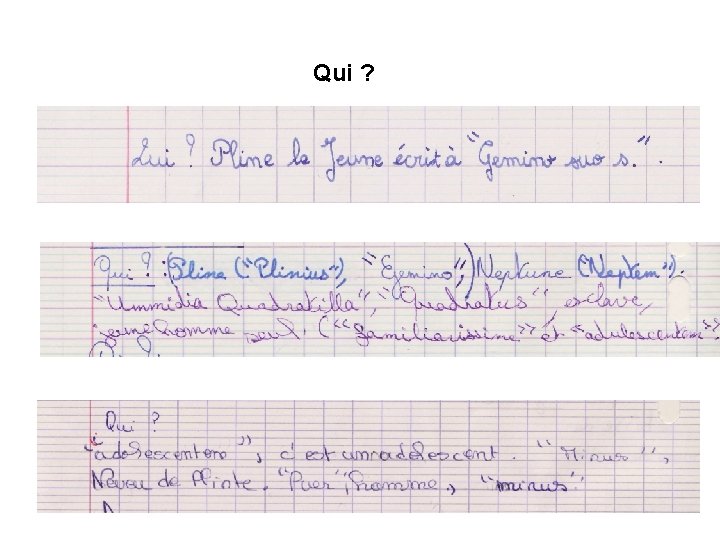 Qui ?
Qui ? Pline le Jeune écrit à "Gemino suo s.".
Qui ? : Pline ("Plinius"), "Egemino", Neptune ("Neptem").
"Ummidia Quadratilla", "Quadratus", esclave,
jeune homme seul. ("familiarissime" et "adulescentem".
Qui ?
"adolescentem", c'est un adolescent. "Minus",
Neveu de Plinte. "Puer", homme, "minus"